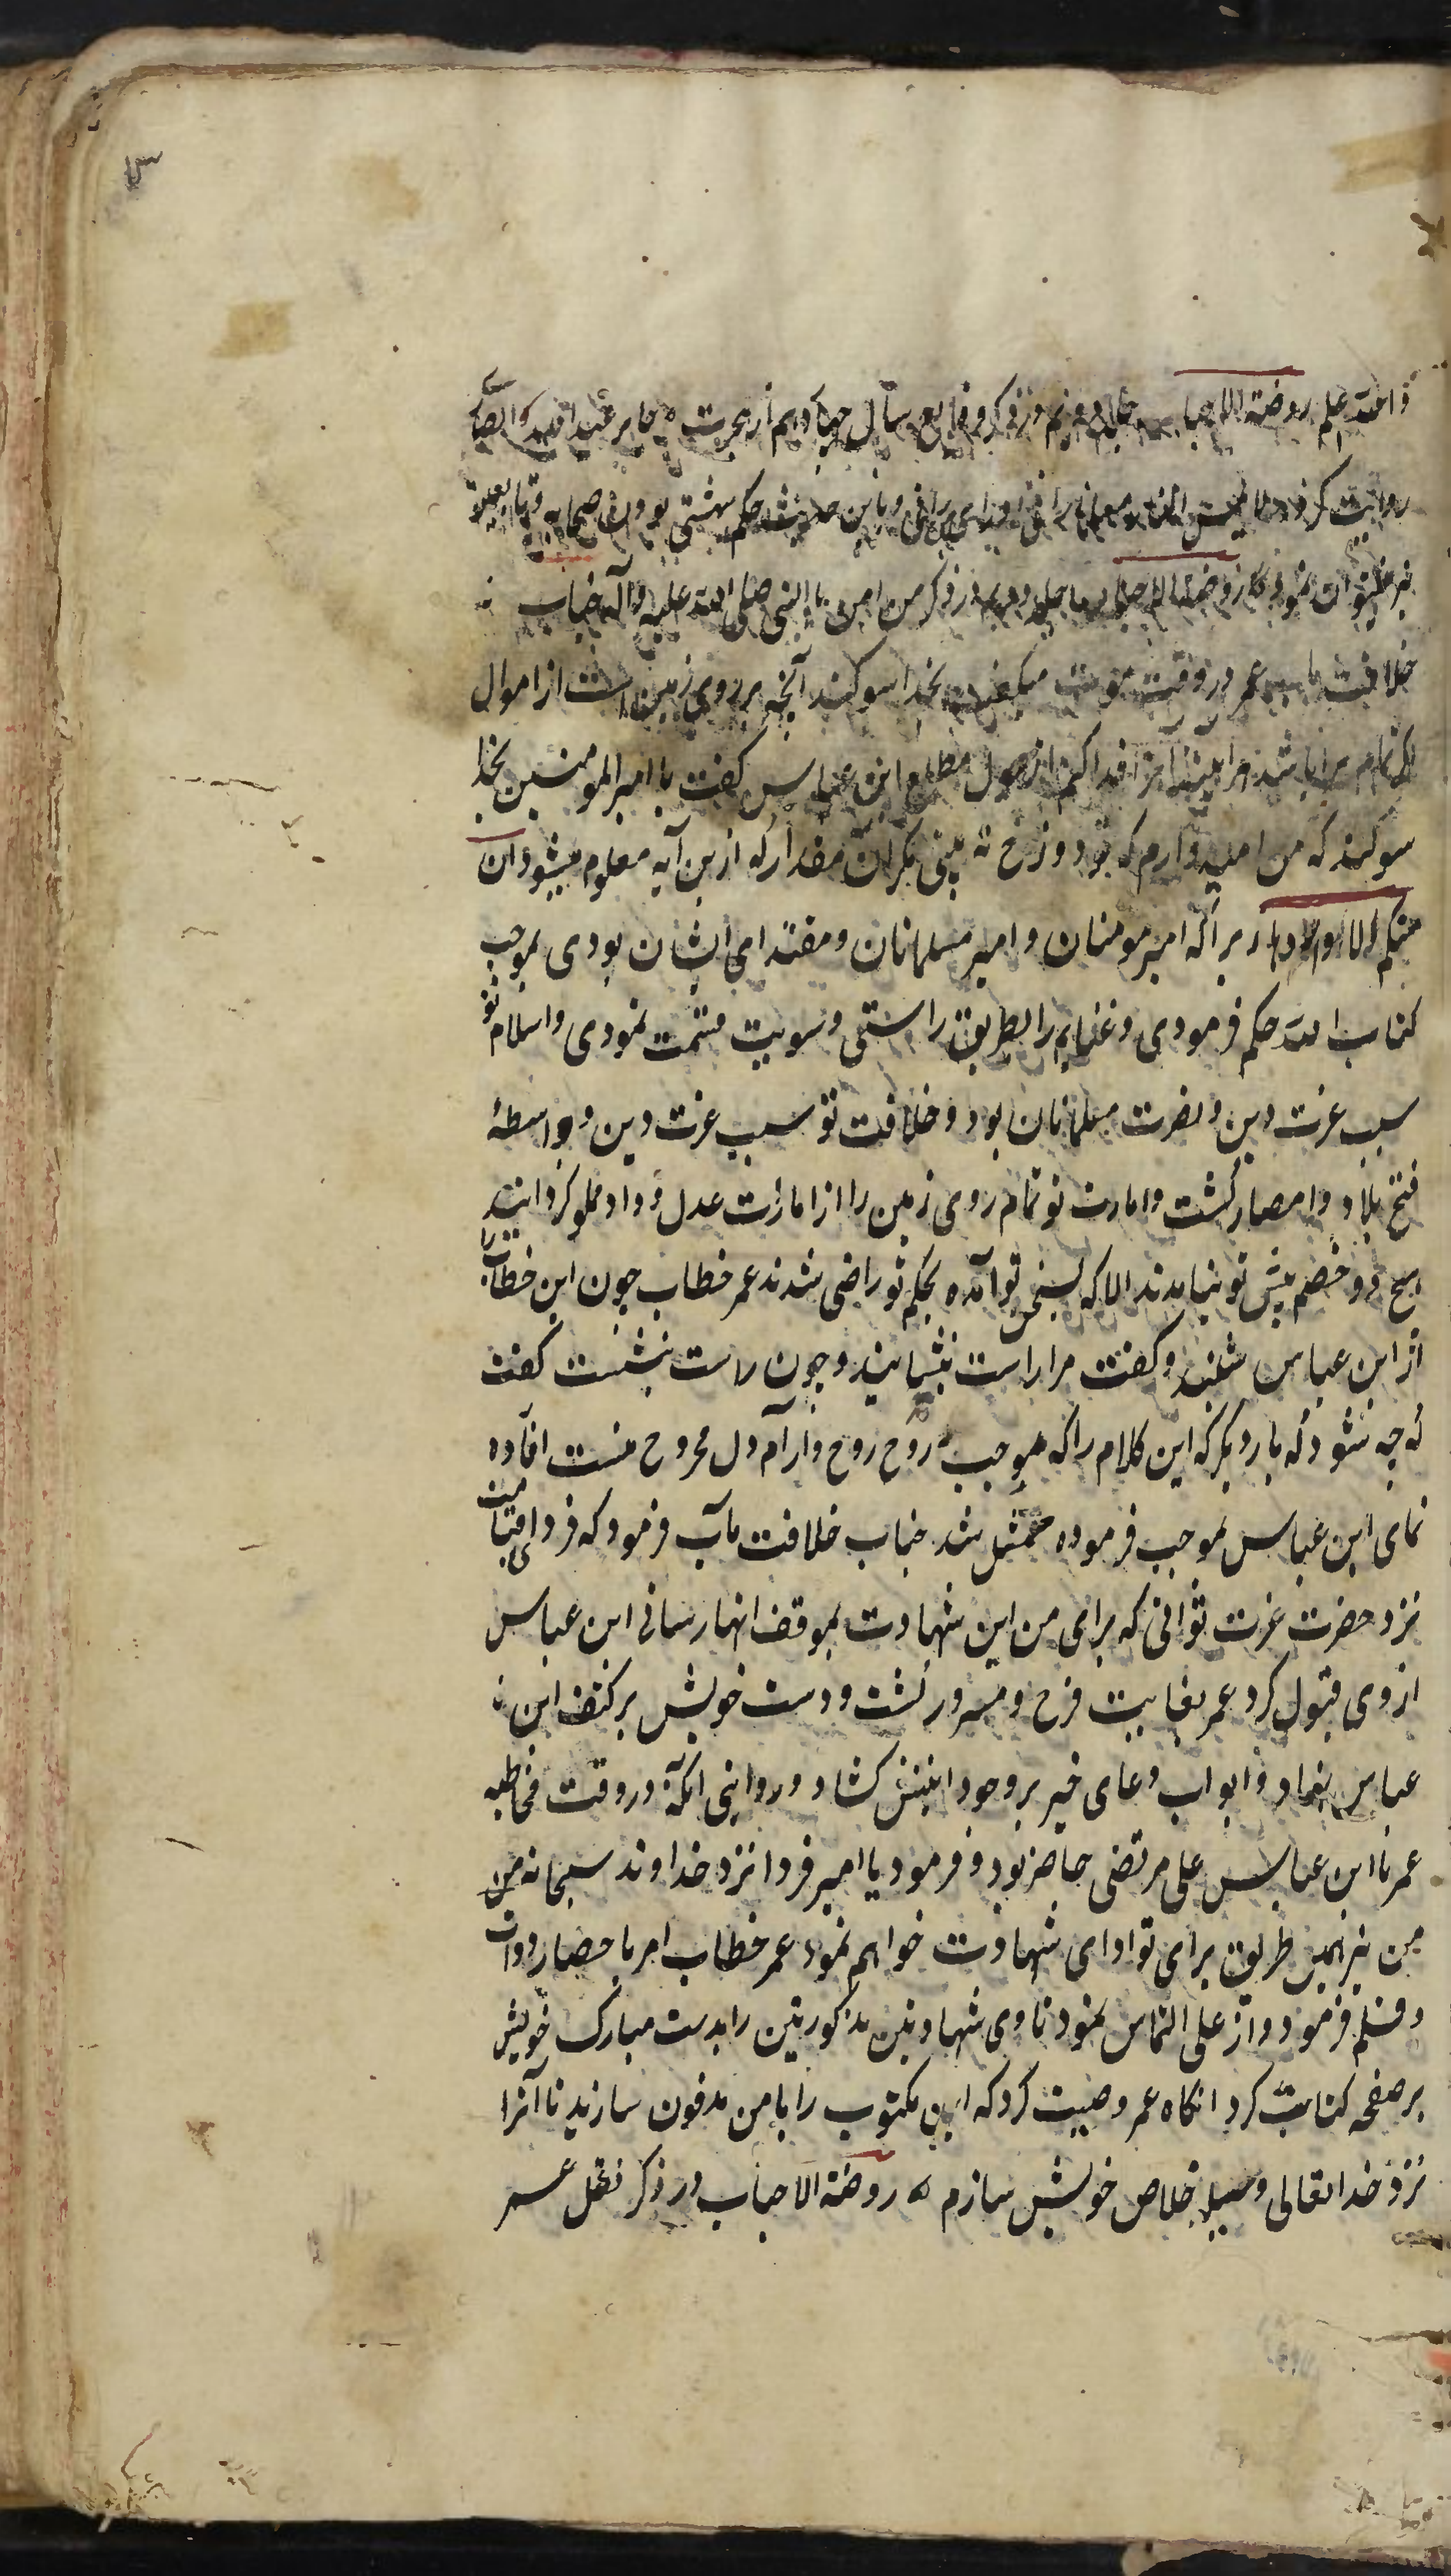 ۳
والله اعلم روضة الاحباب جلد دویم در ذکر وقایع سال چهاردهم از هجرت جابر عبدالله انصاری
روایت کرد حکم بهشتی بودن صحابه و تابعین
نیز نمود روضة الاحباب جلد دویم در ذکر من امن بالنبی صلی الله علیه وآله جناب
خلافت مآب عمر در وقت موت میگفت بخدا سوکند آنچه بر روی زمین است از اموال
اکر تمام مرا باشد هر آینه آنرا فدا کنم از هول مطلع ابن عباس کفت یا امیر المومنین بخدا
سوکند که من امیدوارم که تو دوزخ نه بینی مکر آن مقدار که ازین آیه معلوم میشود ان
منکم الا واردها زیرا که امیر مومنان و امیر مسلمانان و مقتدای ایشان بودی بموجب
کتاب الله حکم فرمودی و غنایم را بطریق راستی و سویت قسمت نمودی و اسلام تو
سبب عزت دین و نصرت مسلمانان بود و خلافت تو سبب عزت دین و واسطهٔ
فتح بلاد و امصار کشت و امارت تو تمام روی زمین را از امارات عدل و داد مملو کردانید
هیچ دو خصم پیش تو نیامدند الا که بسخن تو آمده بحکم تو راضی شدند عمر خطاب چون این خطاب را
از ابن عباس شنید و کفت مرا راست بنشانید و چون راست بنشست کفت
که چه شود که بار دیکر که این کلام را که موجب روح روح و آرام دل مجروح منست افاده
نمای ابن عباس بموجب فرموده متمثل شد جناب خلافت مآب فرمود که فردای قیامت
نزد حضرت عزت توانی که برای من این شهادت بموقف انهار سانی ابن عباس
از وی قبول کرد عمر بغایت فرح و مسرور کشت و دست خویش بر کتف ابن
عباس بنهاد و ابواب دعای خیر بر وجود کشاد و روایتی آنکه در وقت مخاطبه
عمر با ابن عباس علی مرتضی حاضر بود و فرمود یا امیر فردا نزد خداوند سبحانه من
من نیز بهمین طریق برای تو ادای شهادت خواهم نمود عمر خطاب امر باحضار دوات
و قلم فرمود و از علی التماس نمود تا وی شهادتین مذکورتین را بدست مبارک خویش
بر صفحه کتابت کرد انکاه عمر وصیت کرد که این مکتوب را با من مدفون سازید تا آنرا
نزد خدا تعالی وسیله خلاص خویش سازم روضة الاحباب در ذکر نقل عمر